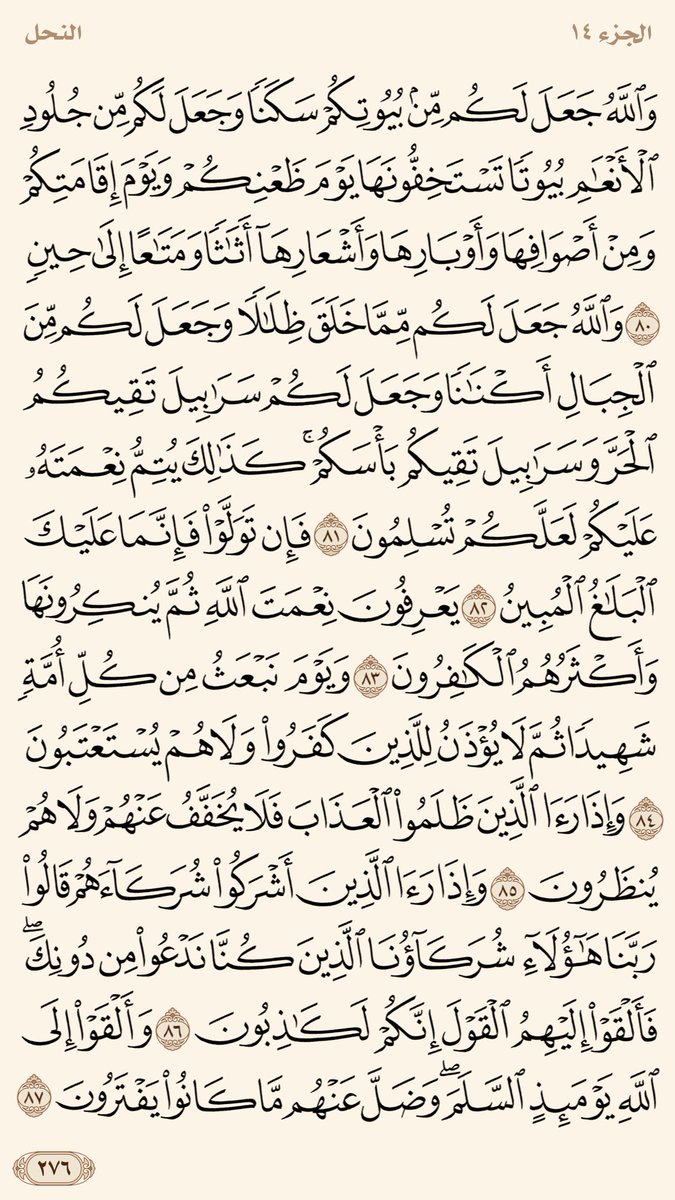 الجزء ١٤
النحل
وَٱللَّهُ جَعَلَ لَكُم مِّنۢ بُيُوتِكُمْ سَكَنًا وَجَعَلَ لَكُم مِّن جُلُودِ
ٱلْأَنْعَٰمِ بُيُوتًا تَسْتَخِفُّونَهَا يَوْمَ ظَعْنِكُمْ وَيَوْمَ إِقَامَتِكُمْ
وَمِنْ أَصْوَافِهَا وَأَوْبَارِهَا وَأَشْعَارِهَآ أَثَٰثًا وَمَتَٰعًا إِلَىٰ حِينٍ
٨٠ وَٱللَّهُ جَعَلَ لَكُم مِّمَّا خَلَقَ ظِلَٰلًا وَجَعَلَ لَكُم مِّنَ
ٱلْجِبَالِ أَكْنَٰنًا وَجَعَلَ لَكُمْ سَرَٰبِيلَ تَقِيكُمُ
ٱلْحَرَّ وَسَرَٰبِيلَ تَقِيكُم بَأْسَكُمْ ۚ كَذَٰلِكَ يُتِمُّ نِعْمَتَهُۥ
عَلَيْكُمْ لَعَلَّكُمْ تُسْلِمُونَ ٨١ فَإِن تَوَلَّوْا۟ فَإِنَّمَا عَلَيْكَ
ٱلْبَلَٰغُ ٱلْمُبِينُ ٨٢ يَعْرِفُونَ نِعْمَتَ ٱللَّهِ ثُمَّ يُنكِرُونَهَا
وَأَكْثَرُهُمُ ٱلْكَٰفِرُونَ ٨٣ وَيَوْمَ نَبْعَثُ مِن كُلِّ أُمَّةٍ
شَهِيدًا ثُمَّ لَا يُؤْذَنُ لِلَّذِينَ كَفَرُوا۟ وَلَا هُمْ يُسْتَعْتَبُونَ
٨٤ وَإِذَا رَءَا ٱلَّذِينَ ظَلَمُوا۟ ٱلْعَذَابَ فَلَا يُخَفَّفُ عَنْهُمْ وَلَا هُمْ
يُنظَرُونَ ٨٥ وَإِذَا رَءَا ٱلَّذِينَ أَشْرَكُوا۟ شُرَكَآءَهُمْ قَالُوا۟
رَبَّنَا هَٰٓؤُلَآءِ شُرَكَآؤُنَا ٱلَّذِينَ كُنَّا نَدْعُوا۟ مِن دُونِكَ ۖ
فَأَلْقَوْا۟ إِلَيْهِمُ ٱلْقَوْلَ إِنَّكُمْ لَكَٰذِبُونَ ٨٦ وَأَلْقَوْا۟ إِلَى
ٱللَّهِ يَوْمَئِذٍ ٱلسَّلَمَ ۖ وَضَلَّ عَنْهُم مَّا كَانُوا۟ يَفْتَرُونَ ٨٧
٢٧٦